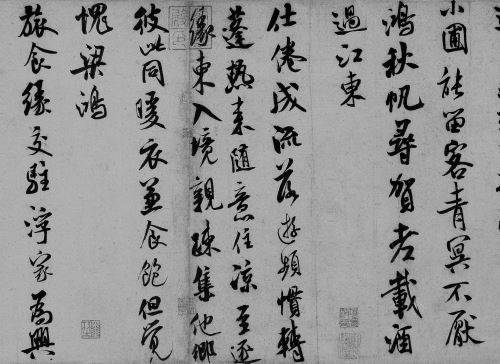 小圃能留客青冥不厭
鴻秋帆尋賀老載酒
過江東
仕倦成流落遊頻慣轉
蓬熱來隨意住涼至逐
緣東入境親疎集他鄉
彼此同暖衣兼食飽但覺
愧梁鴻
旅食緣交駐浮家為興